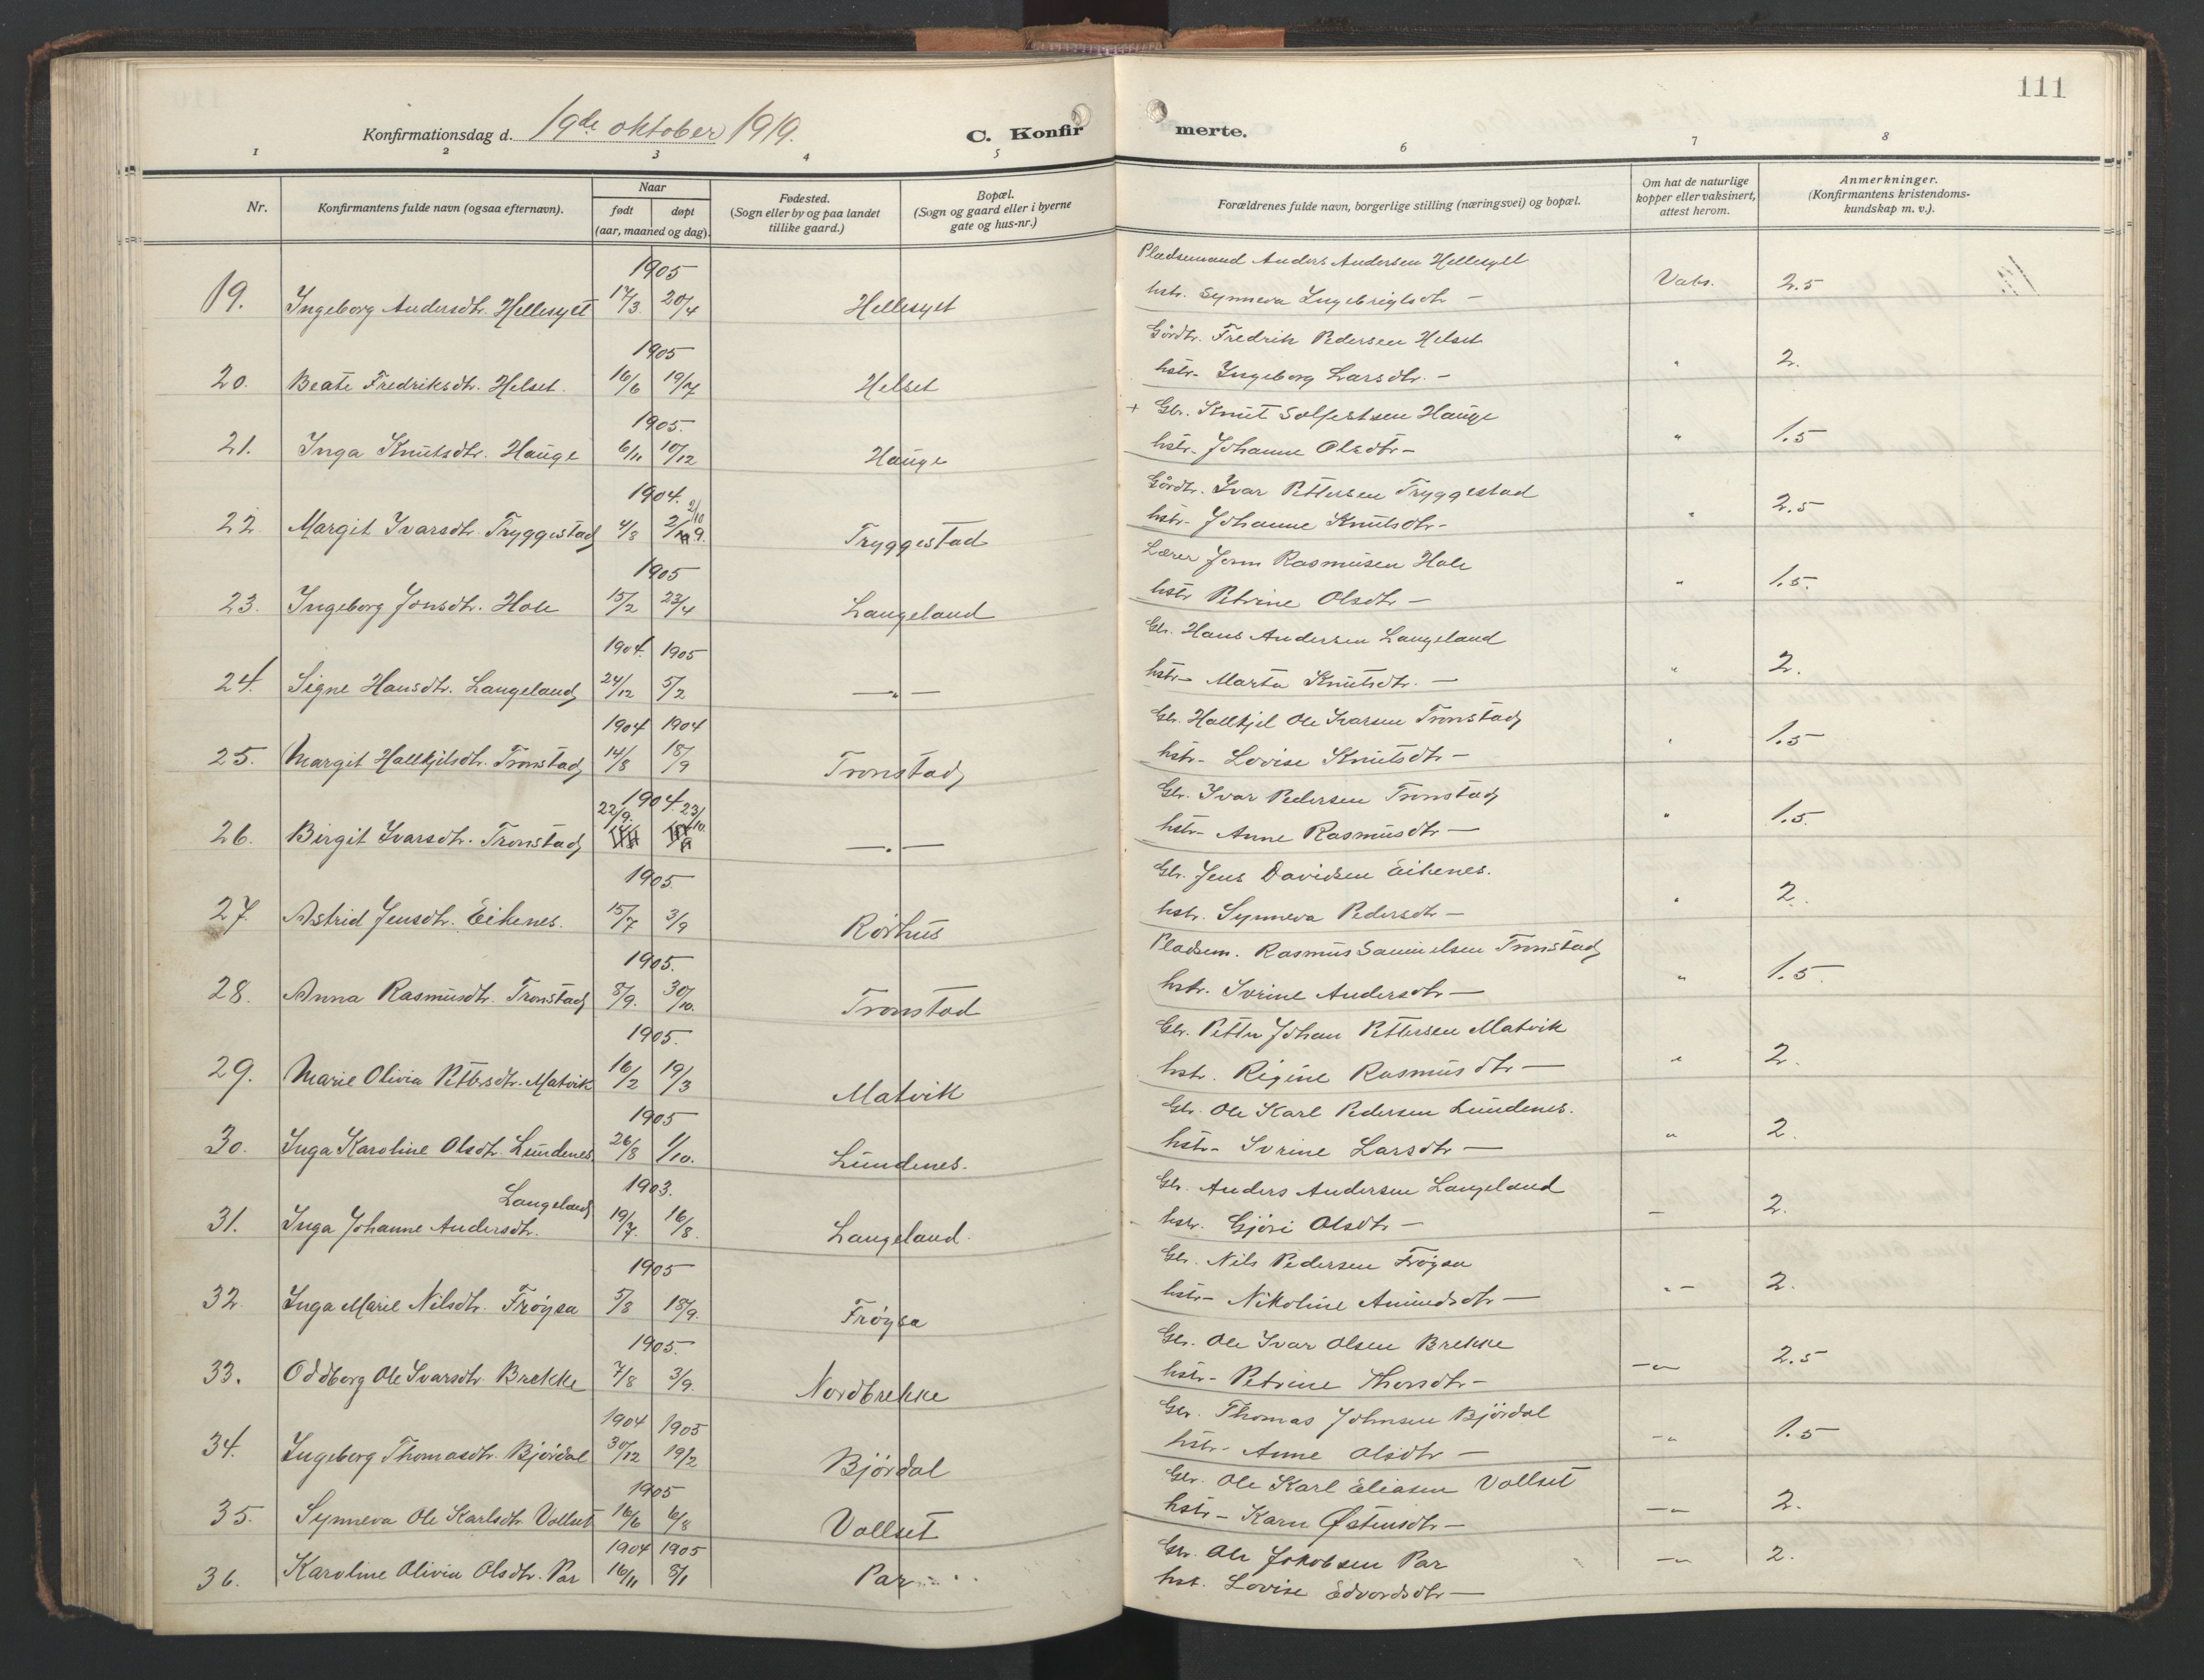 111
Konfirmationsdag d. 19de oktober 1919.
C. Konfirmerte.
1 2 3 4 5 6 7 8
Nr.
Konfirmantens fulde navn (ogsaa efternavn).
Naar
født
døpt
(aar, maaned og dag).
Fødested.
(Sogn eller by og paa landet
tillike gaard.)
Bopæl.
(Sogn og gaard eller i byerne
gate og hus-nr.)
Forældrenes fulde navn, borgerlige stilling (næringsvei) og bopæl.
Om hat de naturlige
kopper eller vaksinert,
attest herom.
Anmerkninger.
(Konfirmantens kristendoms-
kundskap m. v.).
1905 Pladsemand Anders Andersen Hellesylt
19. Ingeborg Andersdtr. Hellesylt 17/3 20/4 Hellesylt hstr. Synneva Ingebrigtsdtr — Vaks. 2.5
1905 Gårdbr. Fredrik Pedersen Helset
20. Beate Fredriksdtr. Helset. 16/6 19/7 Helset hstr. Ingeborg Larsdtr. — " 2.
1905. + Gbr. Knut Solfestsen Hauge
21. Inga Knutsdtr. Hauge 6/11 10/12 Hauge hstr. Johanne Olsdtr — " 1.5
1904. 2/10 Gårdbr. Ivar Pettersen Tryggestad
22. Margit Ivarsdtr. Tryggestad 4/8 Tryggestad hstr. Johanne Knutsdtr — " 2.5
1905 Lærer Jonn Rasmusen Hole
23. Ingeborg Jonsdtr. Hole 15/2 23/4 Langeland hstr Petrine Olsdtr — " 1.5
1904. 1905 Gbr. Hans Andersen Langeland
24. Signe Hansdtr. Langeland 24/12 5/2 — " — hstr. Marta Knutsdtr. — " 2.
1904 1904 Gbr. Hallkjel Ole Ivarsen Tronstad
25. Margit Hallkjelsdtr. Tronstad 14/8 18/9 Tronstad hstr. Lovise Knutsdtr — " 1.5
1904. 22/9. 23/10. Gbr. Ivar Pedersen Tronstad
26. Birgit Ivarsdtr. Tronstad — " — hstr. Anne Rasmusdtr — " 1.5
1905. Gbr. Jens Davidsen Eikenes.
27. Astrid Jensdtr. Eikenes. 15/7 3/9 Rørhus hstr. Synneva Pedersdtr — " 2.
1905. Pladsem. Rasmus Samuelsen Tronstad
28. Anna Rasmusdtr. Tronstad 8/9. 30/10. Tronstad hstr. Ivrine Andersdtr — " 1.5
1905. Gbr. Petter Johan Pettersen Matvik
29. Marie Olivia Pettersdtr. Matvik 16/2 19/3 Matvik hstr. Regine Rasmusdtr — " 2.
1905 Gbr. Ole Karl Pedersen Lundenes.
30. Inga Karoline Olsdtr. Lundenes 26/8 1/10. Lundenes. hstr. Ivrine Larsdtr — " 2.
Langeland 1903. Gbr. Anders Andersen Langeland
31. Inga Johanne Andersdtr. 19/7. 16/8. Langeland. hstr. Gjøri Olsdtr — — 2.
1905 Gbr. Nils Pedersen Frøysa
32. Inga Marie Nilsdtr. Frøysa 5/8 18/9. Frøysa hstr. Nikoline Amundsdtr — " — 2.
1905. Gbr. Ole Ivar Olsen Brekke
33. Oddborg Ole Ivarsdtr. Brekke 7/8 3/9. Nordbrekke hstr. Petrine Thorsdtr — — " 2.5
1904 1905 Gbr. Thomas Johnsen Bjørdal
34. Ingeborg Thomasdtr. Bjørdal 30/12 19/2 Bjørdal hstr. Anne Olsdtr — — " 1.5
1905 Gbr. Ole Karl Eliasen Vollset
35. Synneva Ole Karlsdtr. Vollset 16/6 6/8 Vollset hstr. Karn Østensdtr — — " 2.
1904 1905 Gbr. Ole Jakobsen Par
36. Karoline Olivia Olsdtr. Par 16/11 8/1 Par hst. Lovise Edvardsdtr — — " 2.